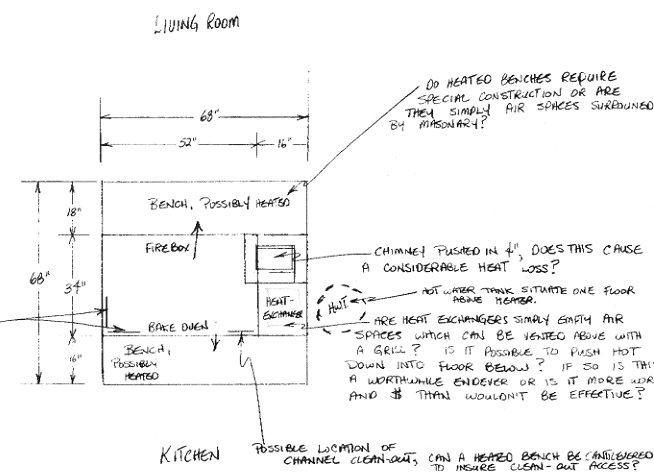 LIVING ROOM
DO HEATED BENCHES REQUIRE
SPECIAL CONSTRUCTION OR ARE
THEY SIMPLY AIR SPACES SURROUNED
BY MASONARY?
68"
52"
16"
BENCH, POSSIBLY HEATED
18"
FIREBOX
CHIMNEY PUSHED IN 4", DOES THIS CAUSE
A CONSIDERABLE HEAT LOSS?
68"
34"
HEAT-
EXCHANGER
H.W.T.
HOT WATER TANK SITUATE ONE FLOOR
ABOVE HEATER.
BAKE OVEN
ARE HEAT EXCHANGERS SIMPLY EMPTY AIR
SPACES WHICH CAN BE VENTED ABOVE WITH
A GRILL? IS IT POSSIBLE TO PUSH HOT
DOWN INTO FLOOR BELOW? IF SO IS THI
A WORTHWHILE ENDEVER OR IS IT MORE WOR
AND $ THAN WOULDN'T BE EFFECTIVE?
16"
BENCH,
POSSIBLY
HEATED
KITCHEN
POSSIBLE LOCATION OF
CHANNEL CLEAN-OUT, CAN A HEATED BENCH BE CANTILEVERED
TO INSURE CLEAN-OUT ACCESS?